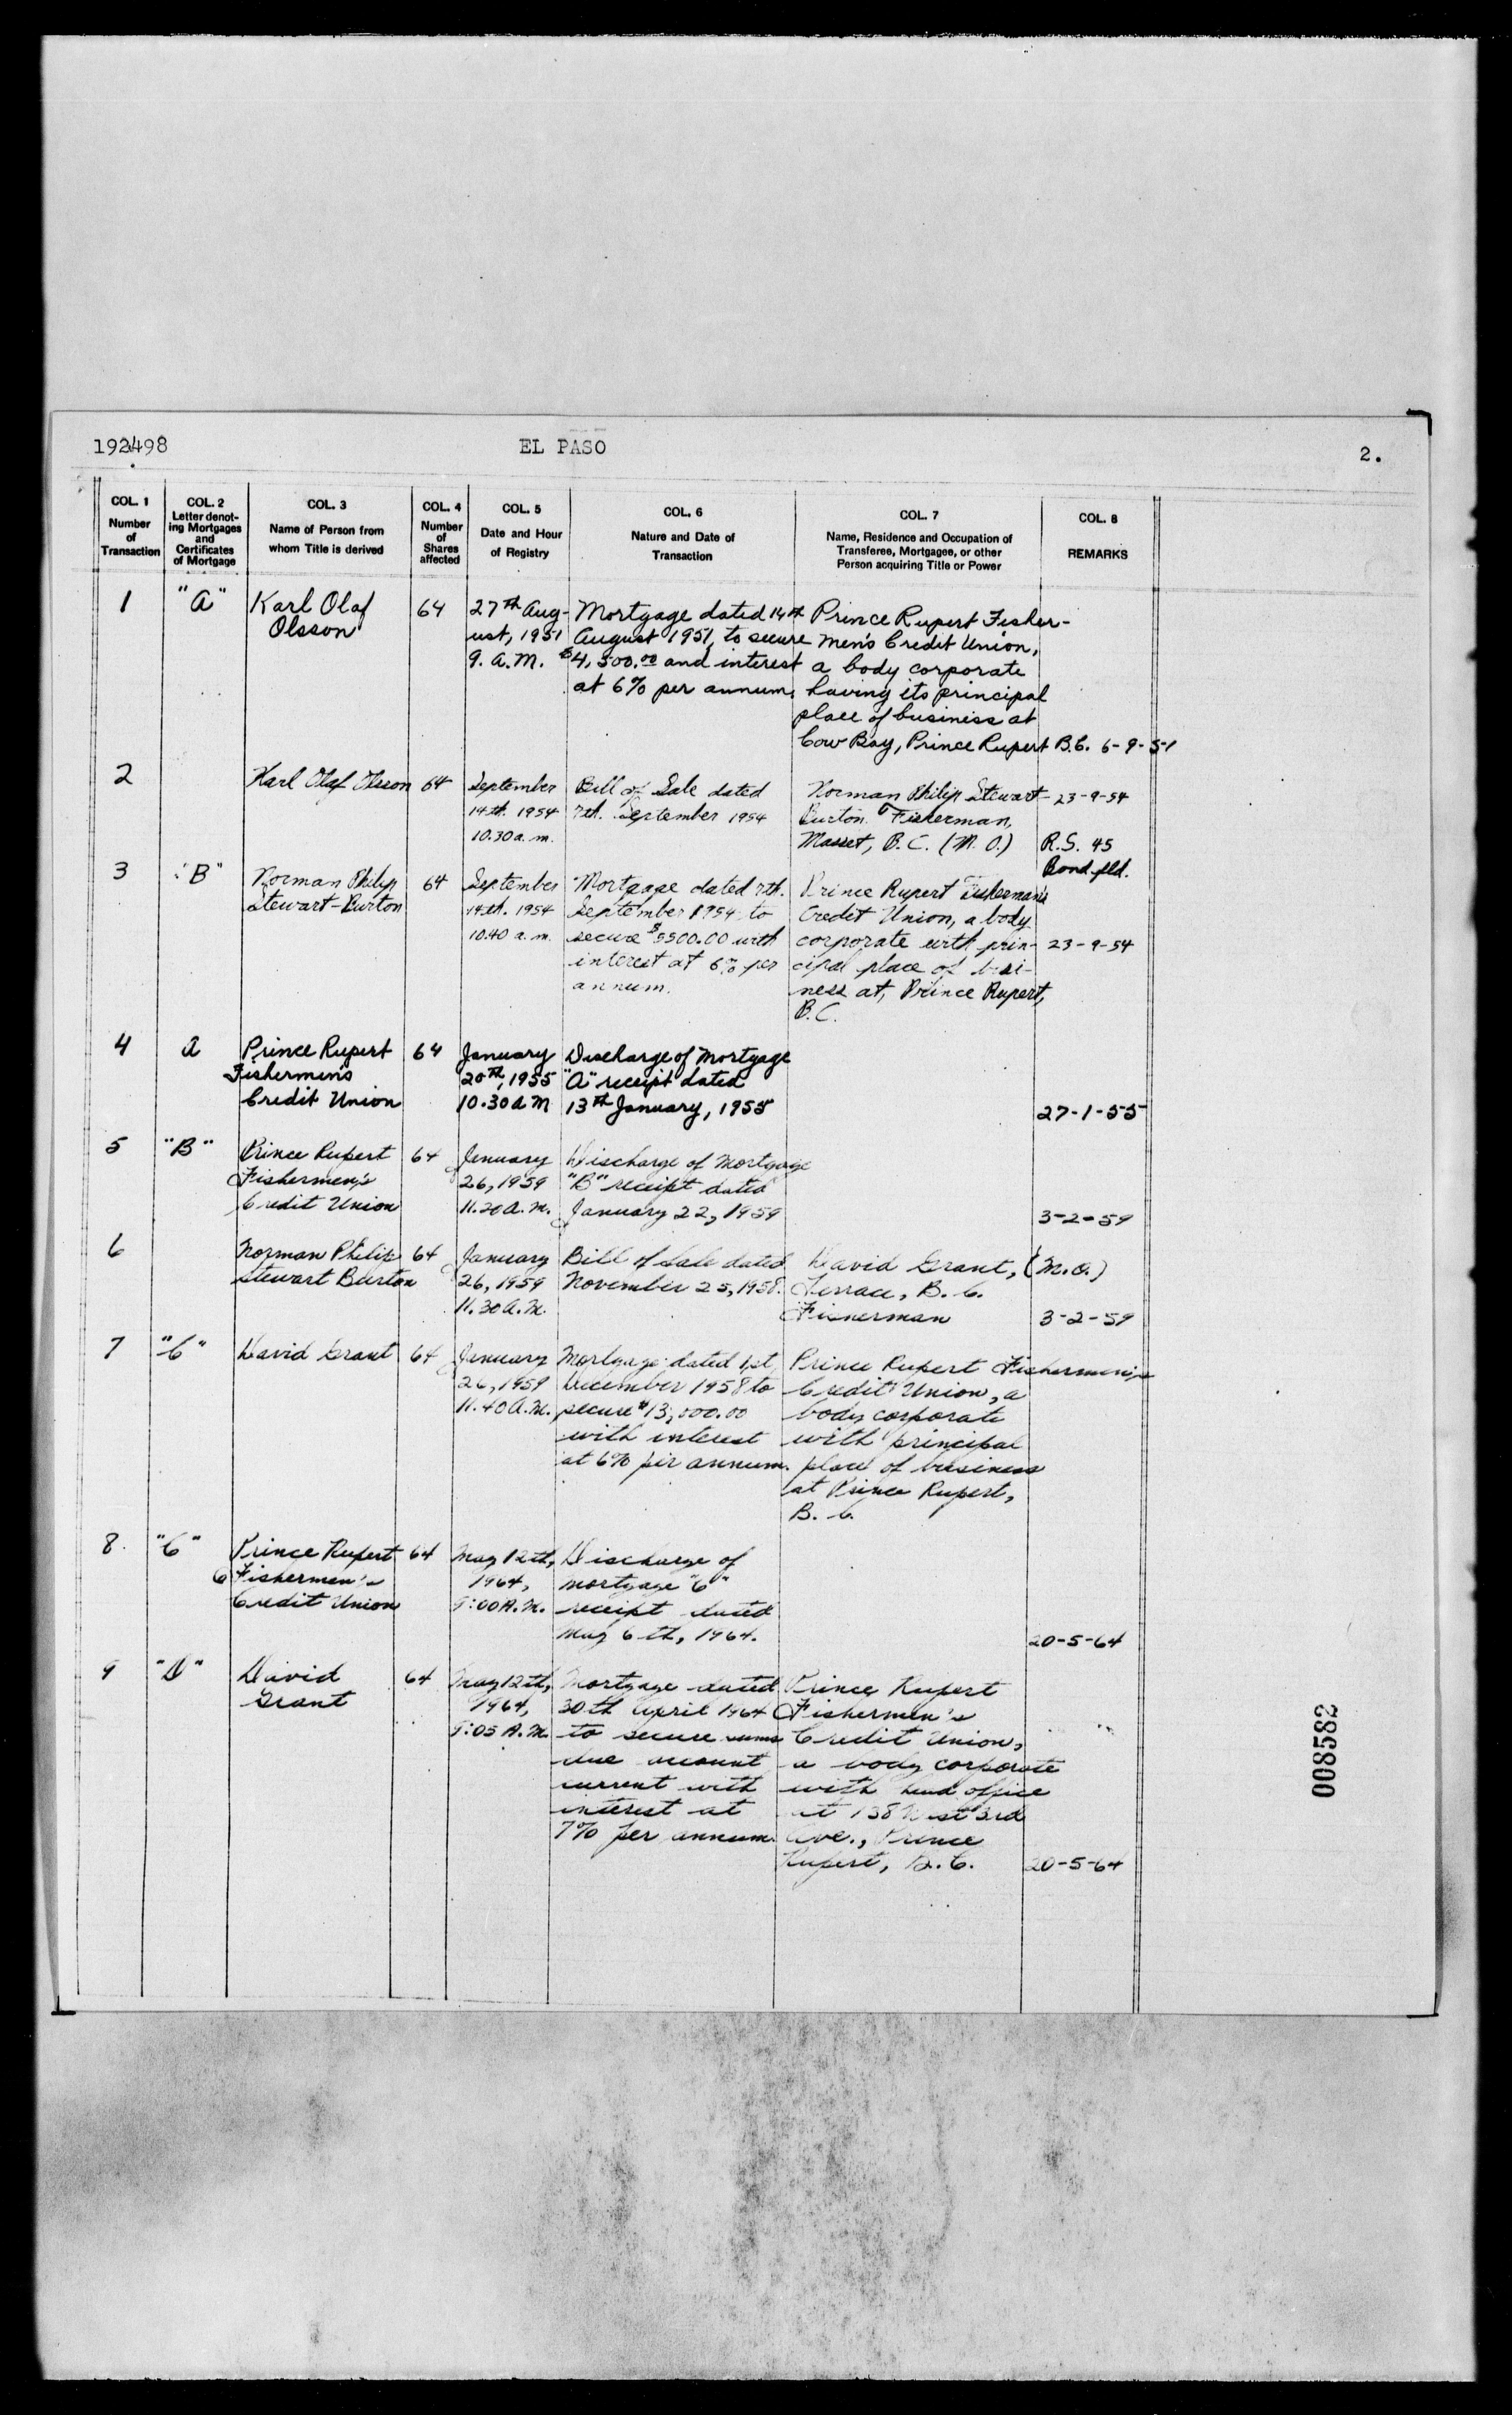 192498 EL PASO 2.
COL. 1 Number of Transaction
COL. 2 Letter denoting Mortgages and Certificates of Mortgage
COL. 3 Name of Person from whom Title is derived
COL. 4 Number of Shares affected
COL. 5 Date and Hour of Registry
COL. 6 Nature and Date of Transaction
COL. 7 Name, Residence and Occupation of Transferee, Mortgagee, or other Person acquiring Title or Power
COL. 8 REMARKS
1 "A" Karl Olaf 64 27th Aug- Mortgage dated 14th Prince Rupert Fisher-
Olsson ust, 1951 August 1951, to secure men's Credit Union,
9. A.M. $4,500.00 and interest a body corporate
at 6% per annum, having its principal
place of business at
Cow Bay, Prince Rupert B.C. 6-9-51
2 Karl Olaf Olsson 64 September Bill of Sale dated Norman Philip Stewart- 23-9-54
14th. 1954 7th. September 1954 Burton Fisherman,
10.30 a.m. Masset, B.C. (M.O.) R.S. 45
Bond fld.
3 "B" Norman Philip 64 September Mortgage dated 7th. Prince Rupert Fishermen's
Stewart-Burton 14th. 1954 September 1954 to Credit Union, a body
10.40 a.m. secure $5500.00 with corporate with prin- 23-9-54
interest at 6% per cipal place of busi-
annum. ness at, Prince Rupert,
B.C.
4 A Prince Rupert 64 January Discharge of Mortgage
Fishermen's 20th, 1955 "A" receipt dated
Credit Union 10.30 A.M 13th January, 1955 27-1-55
5 "B" Prince Rupert 64 January Discharge of Mortgage
Fishermen's 26, 1959 "B" receipt dated
Credit Union 11.20 A.M. January 22, 1959 3-2-59
6 Norman Philip 64 January Bill of Sale dated David Grant, (M.O.)
Stewart Burton 26, 1959 November 25, 1958. Terrace, B.C.
11.30 A.M. Fisherman 3-2-59
7 "C" David Grant 64 January Mortgage dated 1st Prince Rupert Fishermen's
26, 1959 December 1958 to Credit Union, a
11.40 A.M. secure $13,000.00 body corporate
with interest with principal
at 6% per annum. place of business
at Prince Rupert,
B.C.
8. "C" Prince Rupert 64 May 12th, Discharge of
Fishermen's 1964, mortgage "C"
Credit Union 9:00 A.M. receipt dated
May 6th, 1964. 20-5-64
9 "D" David 64 May 12th, Mortgage dated Prince Rupert
Grant 1964, 30th April 1964 Fishermen's
9:05 A.M. to secure sums Credit Union,
due account a body corporate
current with with head office
interest at at 138 West 3rd
7% per annum. Ave., Prince
Rupert, B.C. 20-5-64
008582